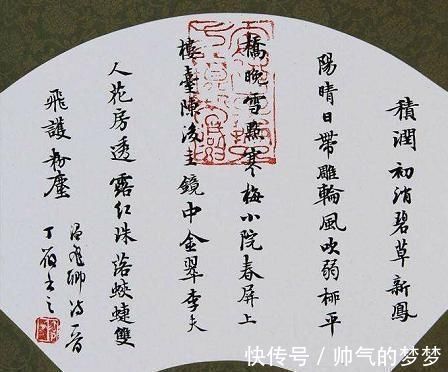 積潤初消碧草新鳳
陽晴日帶雕輪風吹弱柳平
橋晚雪點寒梅小院春屏上
樓臺陳後主鏡中金翠李夫
人花房透露紅珠落蛺蝶雙
飛護粉塵
温飛卿詩一首
丁書之
快传号 / 帅气的梦梦